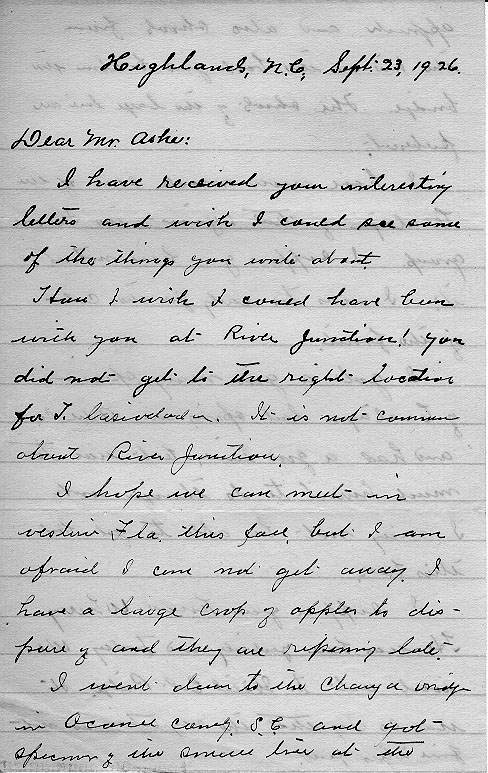 Highlands, N.C., Sept. 23, 1926.
Dear Mr. Ashe:
I have received your interesting
letters and wish I could see some
of the things you write about.
How I wish I could have been
with you at River Junction! You
did not get to the right location
for T. It is not common
about River Junction.
I hope we can meet in
western Fla. this fall, but I am
afraid I can not get away. I
have a large crop of apples to dis-
pose of and they are ripening late.
I went down to the
in Oconee S.C. and got
of the small tree at the